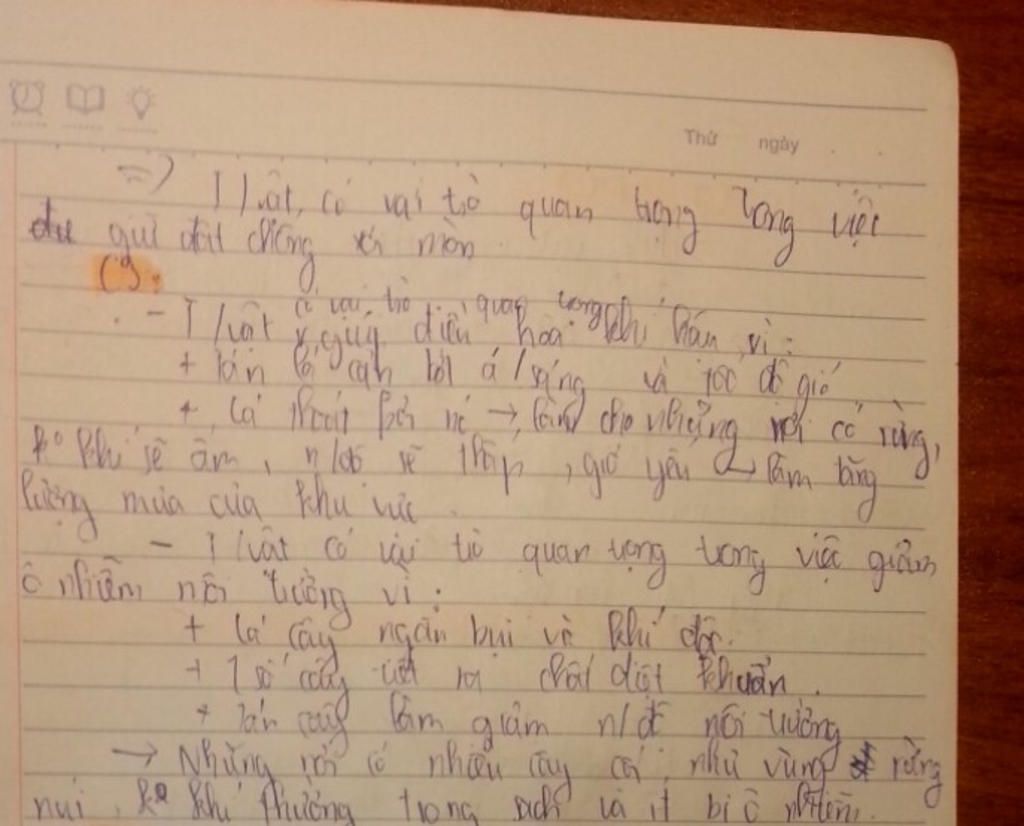 Thứ ngày
=> T/vật có vai trò quan trọng trong việc
giữ đất chống xói mòn
(3):
- T/vật có vai trò quan trọng giúp điều hoà khí hậu vì:
+ tán lá cản bớt á/sáng và tốc độ gió
+ lá thoát hơi nc → làm cho những nơi có rừng,
ko khí sẽ ẩm, n/độ sẽ thấp, gió yếu → làm tăng
lượng mưa của khu vực.
- T/vật có vai trò quan trọng trong việc giảm
ô nhiễm môi trường vì:
+ lá cây ngăn bụi và khí độc.
+ 1 số cây tiết ra chất diệt khuẩn.
+ tán cây làm giảm n/độ môi trường
→ Những nơi có nhiều cây cối như vùng rừng
núi, ko khí thường trong sạch và ít bị ô nhiễm.